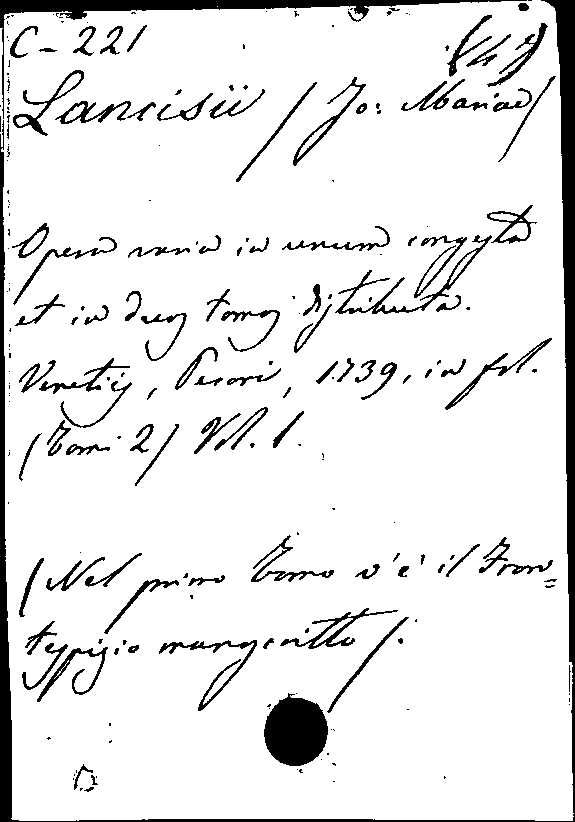 C-221
Lancisii (Jo: Mariae)
Opera varia in unum congesta
et in duos tomos distributa.
Venetiis, Pesari, 1739, in fol.
(Tomi 2) Vol. 1.
(Nel primo Tomo v'è il Fron=
tespizio manoscritto).